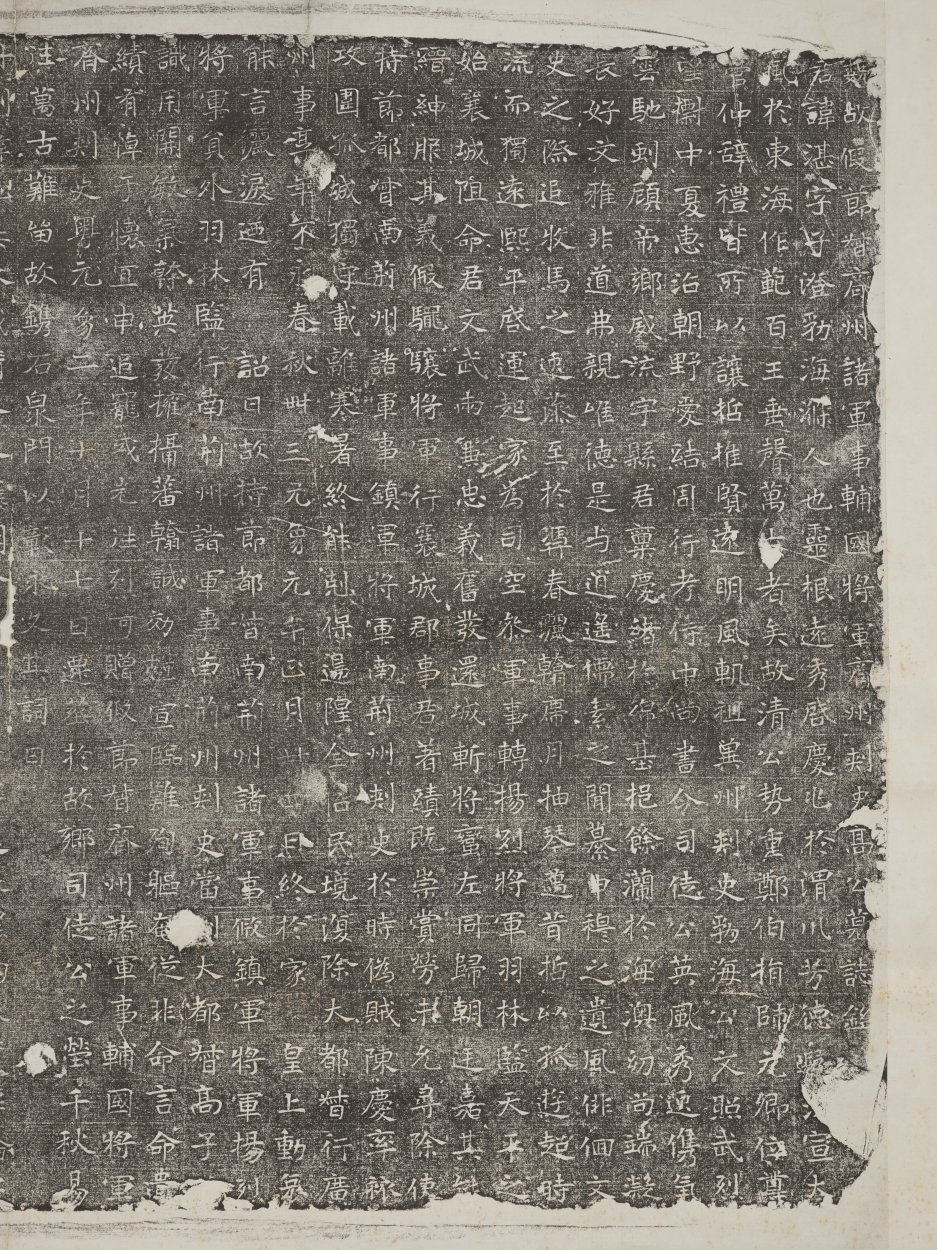 魏故假節督齊州諸軍事輔國將軍齊州刺史高公墓誌銘
君諱湛字子澄勃海滌人也靈根遠秀啓慶兆於渭川芳德宣大
風於東海作範百王垂聲萬古者矣故清公勢重鄭伯捐師元卿位尊
管仲辭禮皆所以讓哲推賢遠明風軌祖冀州刺史勃海公文昭武烈
望標中夏惠治朝野愛結周行考侍中尚書令司徒公英風秀逸儁氣
雲馳剋顧帝鄉威流宇縣君稟慶緒於綿基挹餘瀾於海澳幼尚端凝
長好文雅非道弗親唯德是与逍遙儒素之間纂申穆之遺風俳佪文
史之際追牧馬之逸藻至於彈春灑翰席月抽琴邁昔哲以孤遊超時
流而獨遠熙平啓運起家為司空叅軍事轉揚烈將軍羽林監天平之
始襄城阻命君文武兩兼忠義奮發還城斬將蠻左同歸朝廷嘉其能
縉紳服其義假驪驤將軍行襄城郡事君著績既崇賞勞未允尋除使
持節都督南荊州諸軍事鎮軍將軍南荊州刺史於時偽賊陳慶率旅
攻圍孤城獨守載離寒暑終能剋保邊隍全怙民境復除大都督行廣
州事享年不永春秋卌三元象元年正月廿四日終於家皇上動哀
能言灑淚迺有詔曰故持節都督南荊州諸軍事假鎮軍將軍揚烈
將軍員外羽林監行南荊州諸軍事南荊州刺史當州大都督高子
識用開敏氣幹英發擁攝蕃翰誠効宣臨難殉軀奄從非命言命
績有悼于懷宜申追寵式光往列可贈假節督齊州諸軍事輔國將軍
齊州刺史粵元象二年十月十七日葬於故鄉司徒公之塋千秋易
往萬古難留故鐫石泉門以彰永久其詞曰